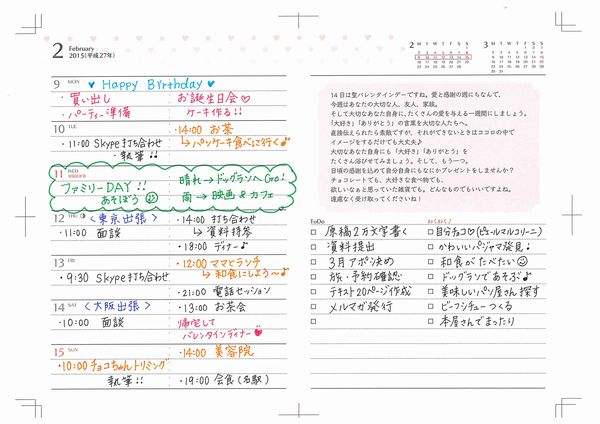 2 February
2015(平成27年)
9 MON
♥ Happy Birthday ♥
・買い出し
お誕生日会♡
・パーティー準備
ケーキ作る!!
10 TUE
・14:00 お茶
・11:00 Skype打ち合わせ
↳パンケーキ食べに行く♪
・執筆!!
11 WED
建国記念の日
ファミリーDAY!!
晴れ→ドッグランへGo!
あそぼう
雨→映画&カフェ
12 THU
<東京出張>
・14:00 打ち合わせ
・11:00 面談
↳資料持参
・18:00 ディナー♪
13 FRI
・12:00 ママとランチ
・9:30 Skype打ち合わせ
↳和食にしよう〜♪
・21:00 電話セッション
14 SAT
<大阪出張>
・13:00 お茶会
・10:00 面談
帰宅して
バレンタインディナー♥
15 SUN
・14:00 美容院
・10:00 チョコちゃんトリミング
執筆!!
・19:00 会食(名駅)
2 M T W T F S S
3 M T W T F S S
14日は聖バレンタインデーですね。愛と感謝の週にちなんで、
今週はあなたの大切な人、友人、家族。
そして大切なあなた自身に、たくさんの愛を与える一週間にしましょう。
「大好き」「ありがとう」の言葉を大切な人たちへ。
直接伝えられたら素敵ですが、それができないときはココロの中で
イメージをするだけでも大丈夫♪
大切なあなた自身にも「大好き」「ありがとう」を
たくさん浴びせてみましょう。そして、もう一つ。
日頃の感謝を込めて自分自身にもなにかプレゼントをしませんか?
チョコレートでも、大好きな食べ物でも、
欲しいなぁと思っていた雑貨でも。どんなものでもいいですよ。
遠慮なく受け取ってくださいね!
ToDo
わくわく♪
原稿2万文字書く
自分チョコ♡(ピエールマルコリーニ)
資料提出
かわいいパジャマ発見!
3月アポ決め
和食がたべたい
旅・予約確認
ドッグランであそぶ♪
テキスト20ページ作成
美味しいパン屋さん探す
メルマガ発行
ビーフシチューつくる
本屋さんでまったり